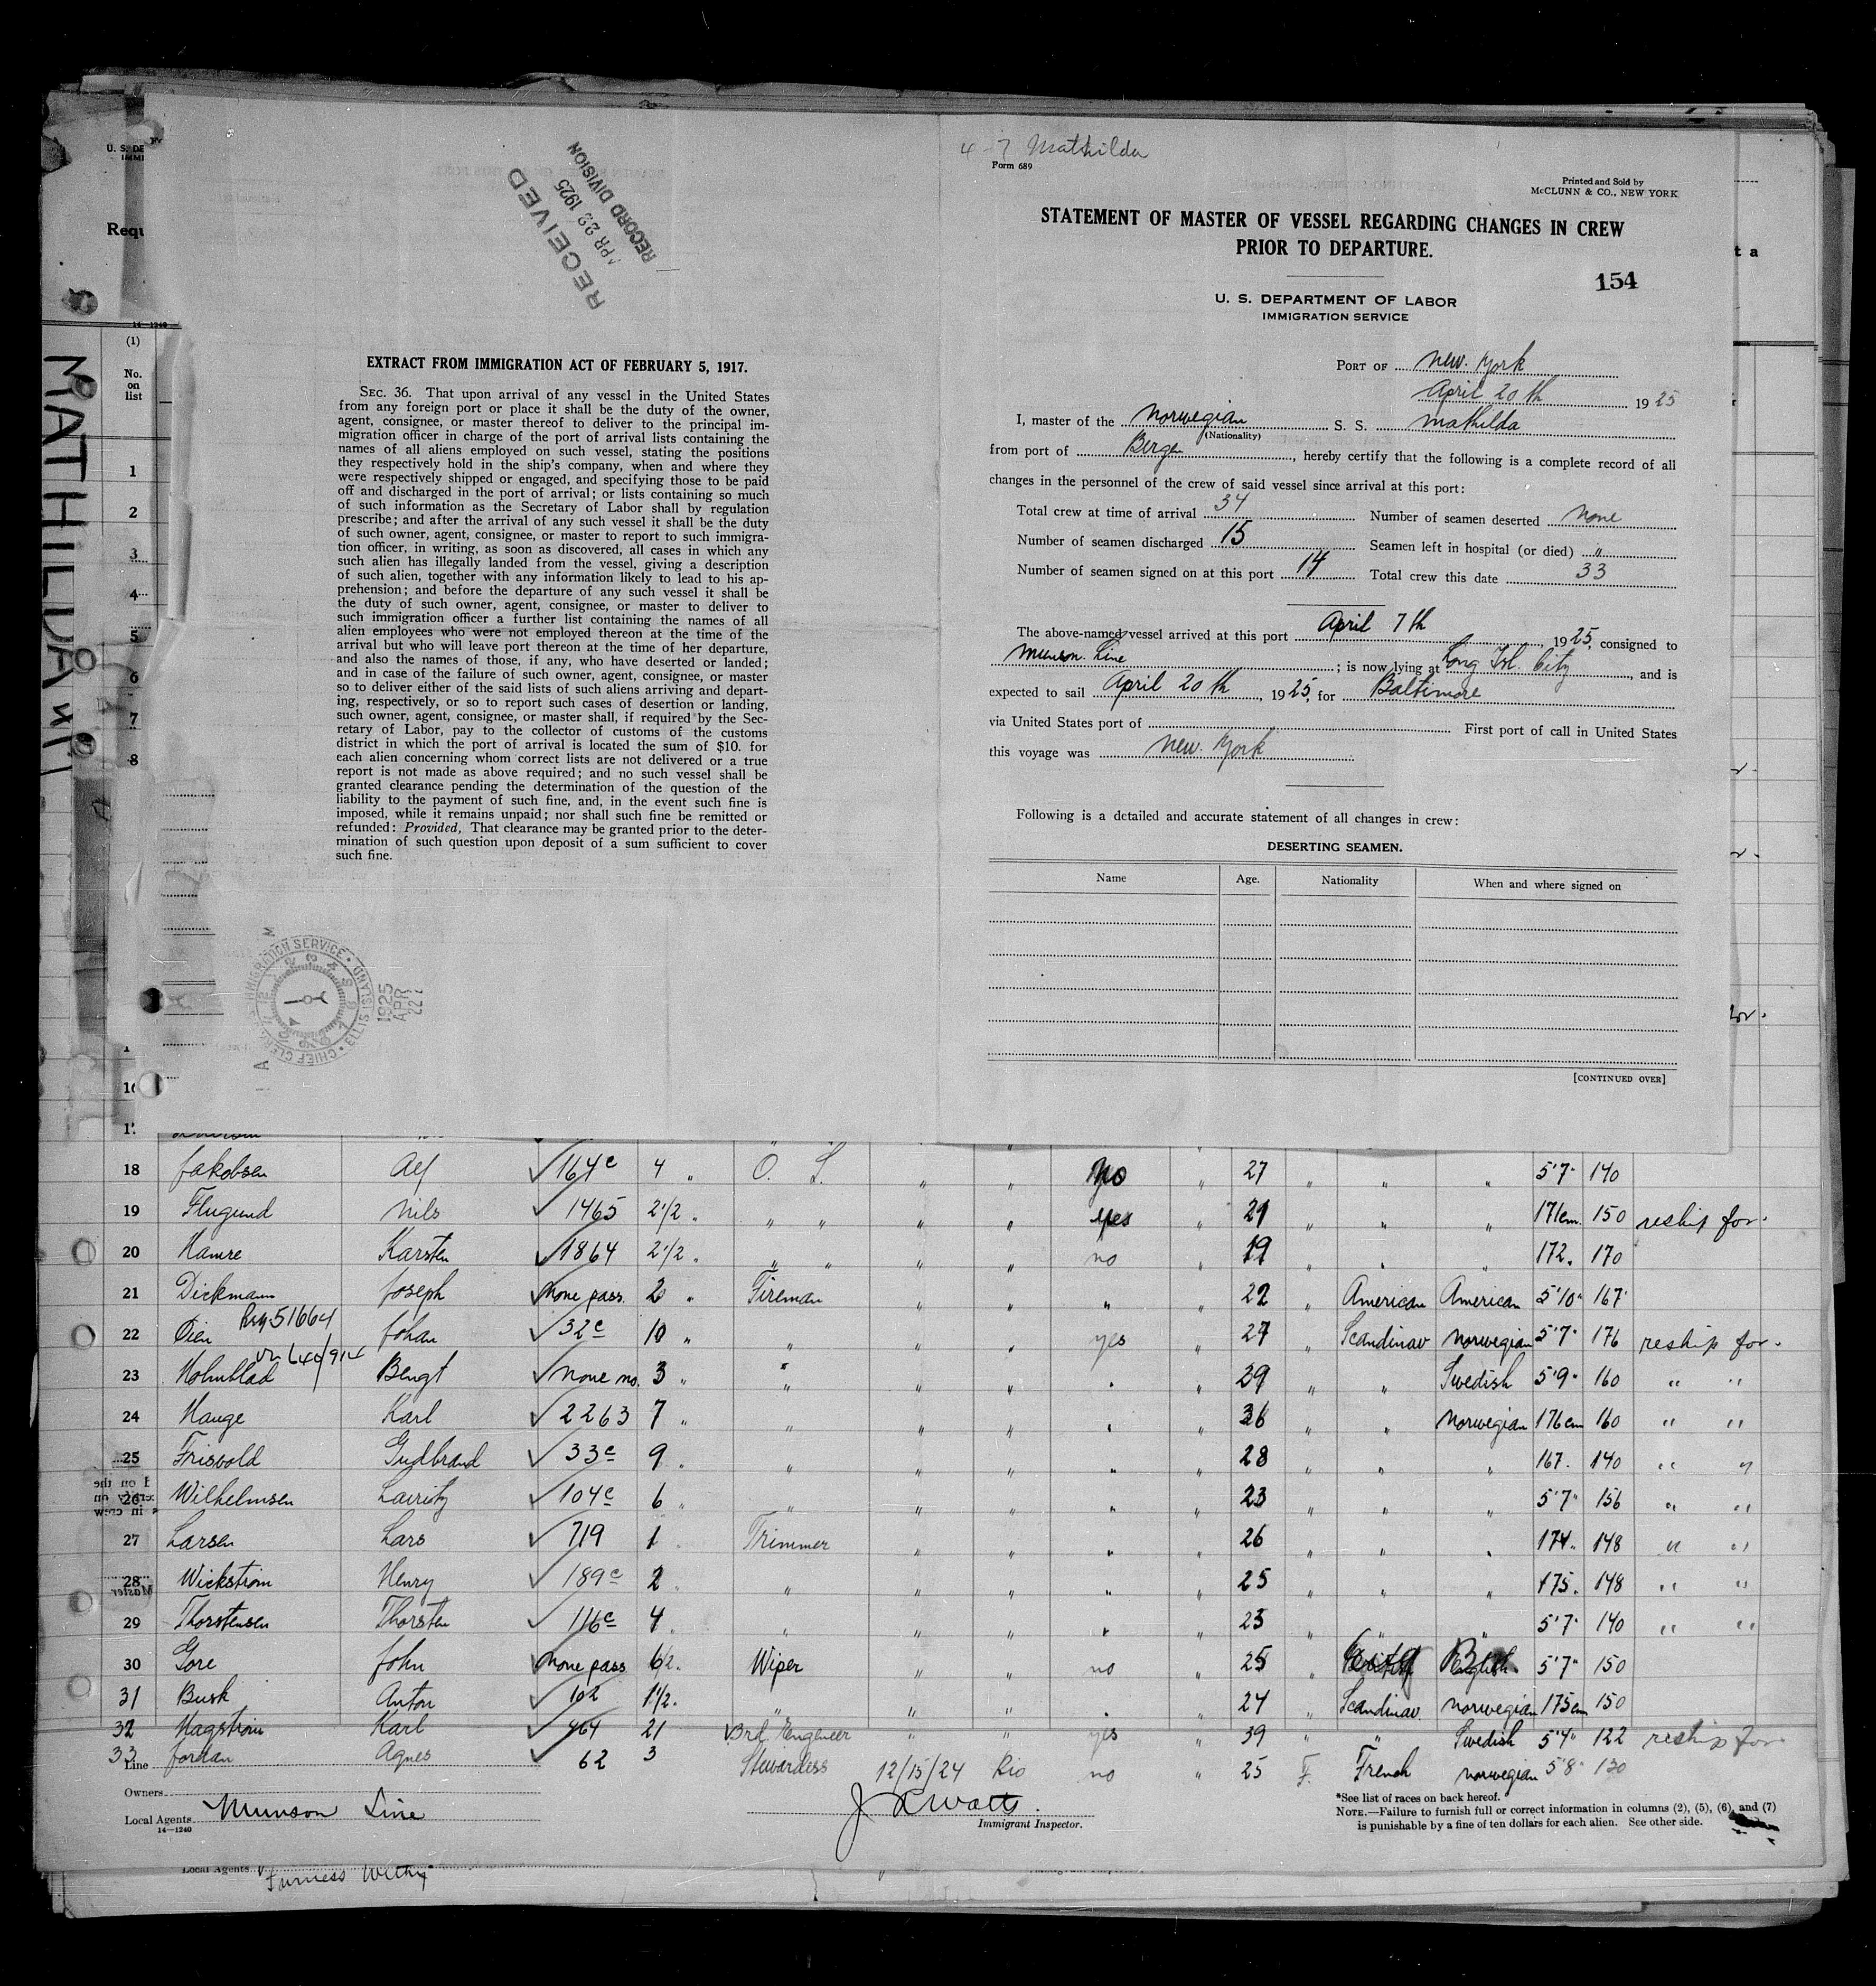 RECEIVED
APR 22 1925
RECORD DIVISION
EXTRACT FROM IMMIGRATION ACT OF FEBRUARY 5, 1917.
SEC. 36. That upon arrival of any vessel in the United States
from any foreign port or place it shall be the duty of the owner,
agent, consignee, or master thereof to deliver to the principal im-
migration officer in charge of the port of arrival lists containing the
names of all aliens employed on such vessel, stating the positions
they respectively hold in the ship's company, when and where they
were respectively shipped or engaged, and specifying those to be paid
off and discharged in the port of arrival; or lists containing so much
of such information as the Secretary of Labor shall by regulation
prescribe; and after the arrival of any such vessel it shall be the duty
of such owner, agent, consignee, or master to report to such immigra-
tion officer, in writing, as soon as discovered, all cases in which any
such alien has illegally landed from the vessel, giving a description
of such alien, together with any information likely to lead to his ap-
prehension; and before the departure of any such vessel it shall be
the duty of such owner, agent, consignee, or master to deliver to
such immigration officer a further list containing the names of all
alien employees who were not employed thereon at the time of the
arrival but who will leave port thereon at the time of her departure,
and also the names of those, if any, who have deserted or landed;
and in case of the failure of such owner, agent, consignee, or master
so to deliver either of the said lists of such aliens arriving and depart-
ing, respectively, or so to report such cases of desertion or landing,
such owner, agent, consignee, or master shall, if required by the Sec-
retary of Labor, pay to the collector of customs of the customs
district in which the port of arrival is located the sum of $10. for
each alien concerning whom correct lists are not delivered or a true
report is not made as above required; and no such vessel shall be
granted clearance pending the determination of the question of the
liability to the payment of such fine, and, in the event such fine is
imposed, while it remains unpaid; nor shall such fine be remitted or
refunded: Provided, That clearance may be granted prior to the deter-
mination of such question upon deposit of a sum sufficient to cover
such fine.
IMMIGRATION SERVICE · ELLIS ISLAND · CHIEF CLERK
1925 APR 22
4-7 Mathilda
Form 689
Printed and Sold by
McCLUNN & CO., NEW YORK
STATEMENT OF MASTER OF VESSEL REGARDING CHANGES IN CREW
PRIOR TO DEPARTURE.
154
U. S. DEPARTMENT OF LABOR
IMMIGRATION SERVICE
PORT OF New York
April 20th 1925
I, master of the Norwegian S. S. Mathilda
(Nationality)
from port of Bergen, hereby certify that the following is a complete record of all
changes in the personnel of the crew of said vessel since arrival at this port:
Total crew at time of arrival 34 Number of seamen deserted None
Number of seamen discharged 15 Seamen left in hospital (or died) "
Number of seamen signed on at this port 14 Total crew this date 33
The above-named vessel arrived at this port April 7th, 1925, consigned to
Munson Line; is now lying at Long Isl. City, and is
expected to sail April 20th, 1925, for Baltimore
via United States port of First port of call in United States
this voyage was New York
Following is a detailed and accurate statement of all changes in crew:
DESERTING SEAMEN.
Name Age. Nationality When and where signed on
[CONTINUED OVER]
MATHILDA
U. S. DE
IMMI
Requ
14—1240
(1)
No. on list
1
2
3
4
5
6
7
8
18 Jakobsen Alf 164c 4 " O. S. " " No " 27 " " " 5'7" 140
19 Flugund Nils 1465 2 1/2 " " " " " yes " 21 " " " 171cm. 150 reship for.
20 Hamre Karsten 1864 2 1/2 " " " " " no " 19 " " " 172. 170
21 Dickmann Joseph None pass. 2 " Fireman " " " " 22 " American American 5'10" 167
22 Øien Johan 32c 10 " " " " yes " 27 " Scandinav Norwegian 5'7" 176 reship for.
23 Holmblad Bengt None no. 3 " " " " " " 29 " " Swedish 5'9" 160 " "
24 Hauge Karl 2263 7 " " " " " " 36 " " Norwegian 176cm 160 " "
25 Frisvold Gudbrand 33c 9 " " " " " " 28 " " " 167. 140 " "
26 Wilhelmsen Lauritz 104c 6 " " " " " " 23 " " " 5'7" 156 " "
27 Larsen Lars 719 1 " Trimmer " " " " 26 " " " 174. 148 " "
28 Wickstrom Henry 189c 2 " " " " " " 25 " " " 175. 148 " "
29 Thorstensen Thorsten 116c 4 " " " " " " 23 " " " 5'7" 140 " "
30 Gore John None pass 6/2. Wiper " " no " 25 " English 5'7" 150
31 Busk Anton 102 1 1/2. " " " " " 24 " Scandinav. Norwegian 175cm 150
32 Hagstrom Karl 464 21 3rd Engineer " " yes " 39 " " Swedish 5'4" 122 reship for
33 Jordan Agnes 62 3 Stewardess 12/15/24 Rio no " 25 F. French Norwegian 5'8" 130
Line
Owners
Local Agents Munson Line
14—1240
Immigrant Inspector.
*See list of races on back hereof.
NOTE.—Failure to furnish full or correct information in columns (2), (5), (6), and (7)
is punishable by a fine of ten dollars for each alien. See other side.
Local Agents
Furness Withy